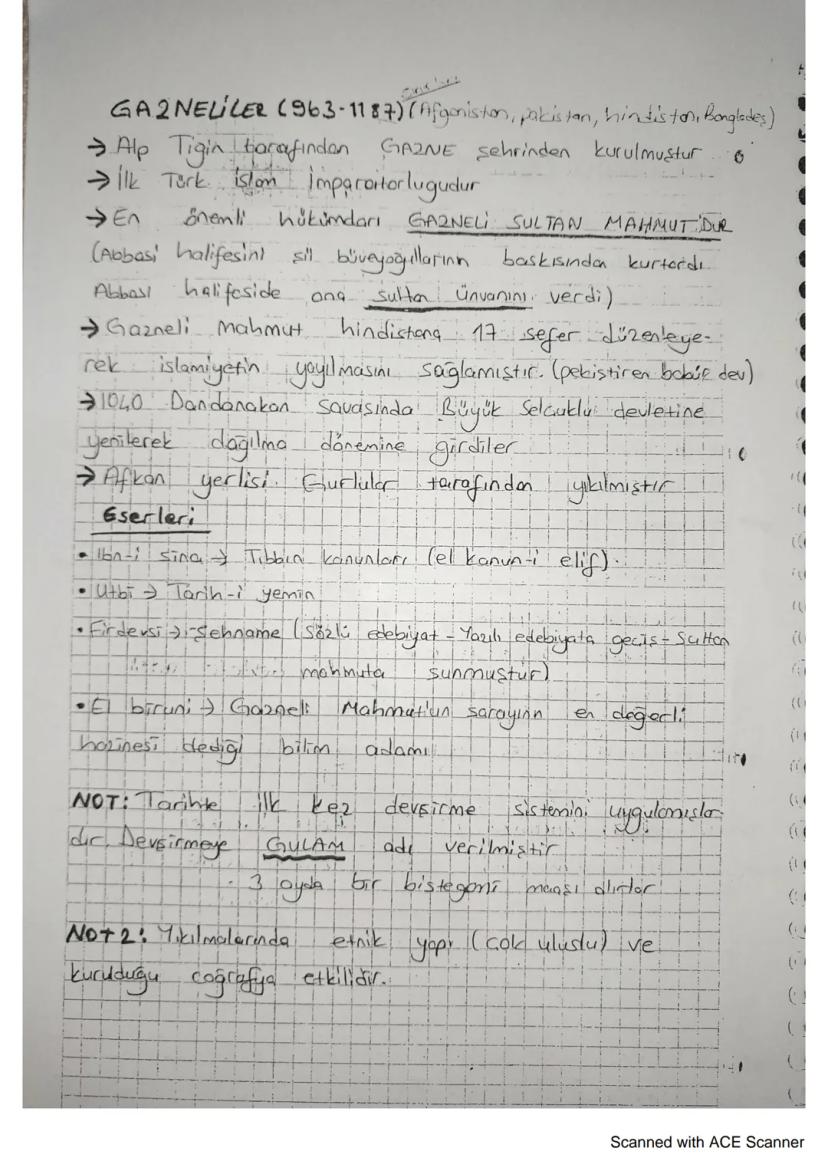 GAZNELİLER (963-1187) (Afganistan, pakistan, hindistan, Bangladeş)
→ Alp Tigin tarafından GAZNE şehrinden kurulmuştur
→ İlk Türk islam İmparatorlugudur
→ En önemli hükümdarı GAZNELİ SULTAN MAHMUT'DUR
(Abbasi halifesini şii büveyoğullarının baskısından kurtardı
Abbasi halifeside ona sultan ünvanını verdi)
→ Gazneli Mahmut hindistana 17 sefer düzenleye-
rek islamiyetin yayılmasını sağlamıştır. (pekiştiren babür dev)
→ 1040 Dandanakan savaşında Büyük Selçuklu devletine
yenilerek dağılma dönemine girdiler
→ Afkan yerlisi Gurlular tarafından yıkılmıştır
Eserleri
• İbn-i sina → Tıbbın kanunları (el kanun-i elif).
• Utbi → Tarih-i yemin
• Firdevsi → Şehname (Sözlü edebiyat - Yazılı edebiyata geçiş - Sultan
mahmuta sunmuştur)
• El biruni → Gazneli Mahmut'un sarayının en değerli
hazinesi dediği bilim adamı
NOT: Tarihte ilk kez devşirme sistemini uygulamışlar-
dır. Devşirmeye GULAM adı verilmiştir
3 ayda bir bistegani maaşı alırlar
NOT 2: Yıkılmalarında etnik yapı (çok uluslu) ve
kuruduğu coğrafya etkilidir.
Scanned with ACE Scanner